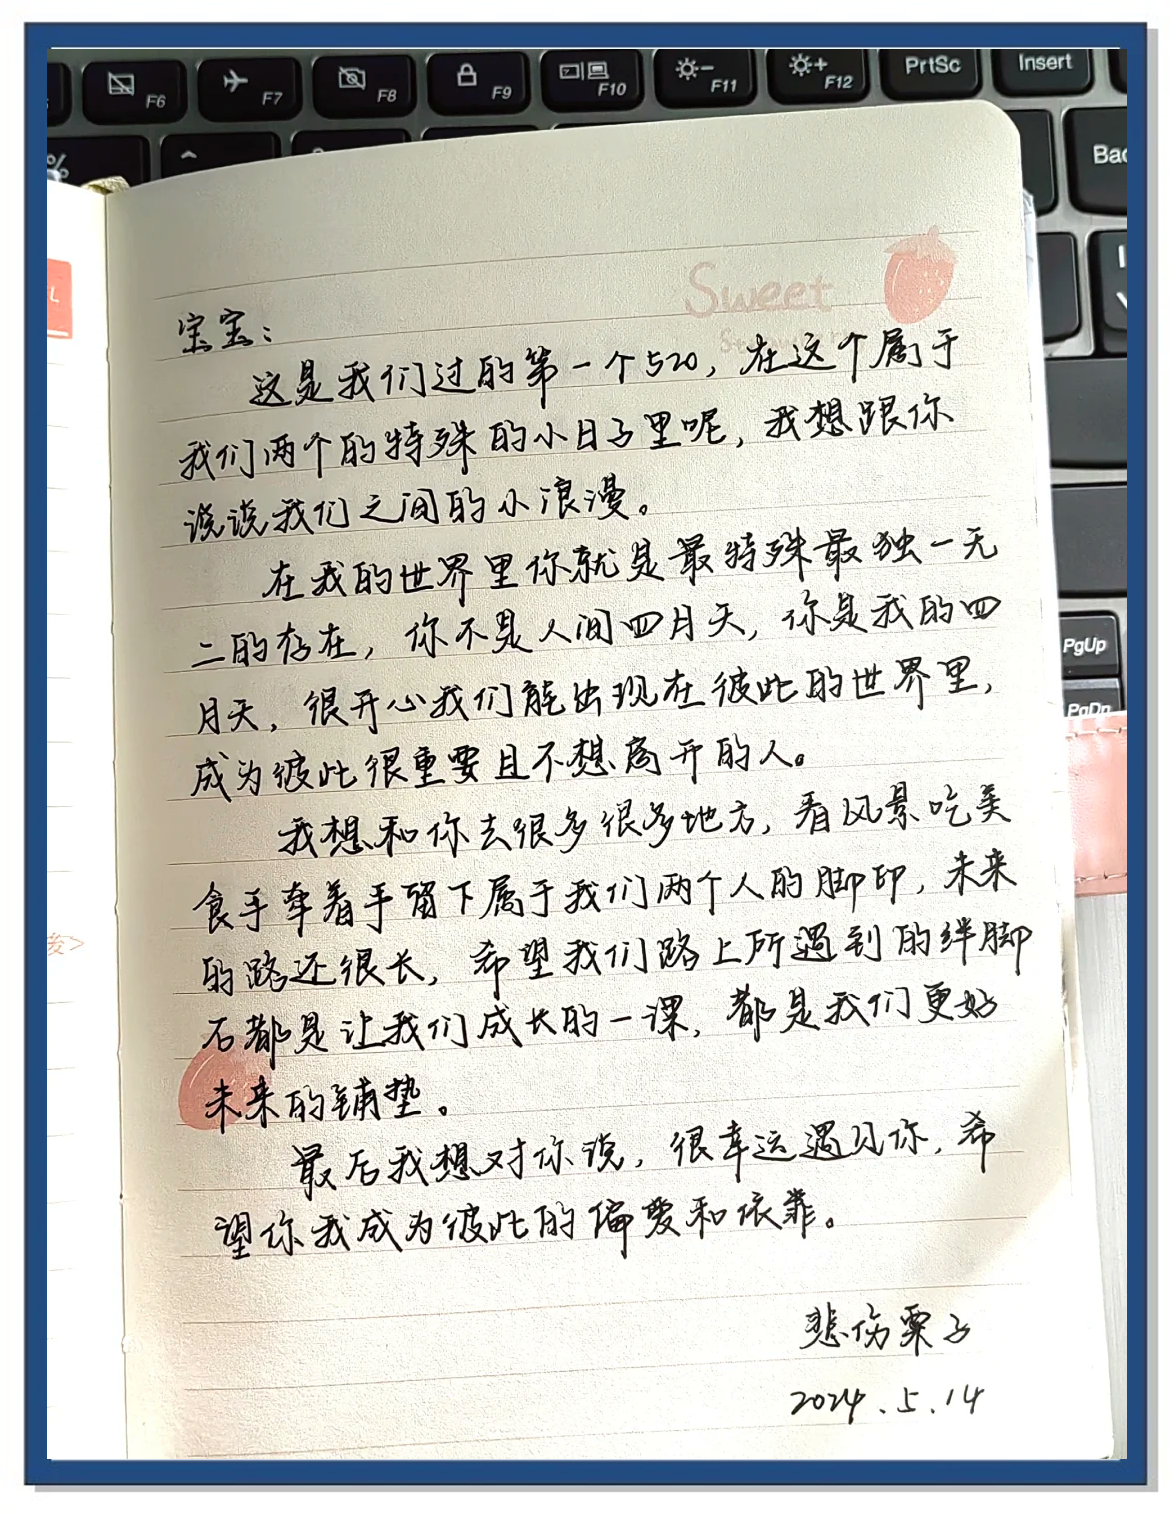 F6
F7
F8
F9
F10
F11
F12
PrtSc
Insert
%
Bac
Sweet
宝宝：
这是我们过的第一个520，在这个属于
我们两个的特殊的小日子里呢，我想跟你
说说我们之间的小浪漫。
在我的世界里你就是最特殊最独一无
二的存在，你不是人间四月天，你是我的四
月天，很开心我们能出现在彼此的世界里，
成为彼此很重要且不想离开的人。
我想和你去很多很多地方，看风景吃美
食手牵着手留下属于我们两个人的脚印，未来
的路还很长，希望我们路上所遇到的绊脚
石都是让我们成长的一课，都是我们更好
未来的铺垫。
最后我想对你说，很幸运遇见你，希
望你我成为彼此的偏爱和依靠。
悲伤栗子
2024.5.14
PgUp
PgDn